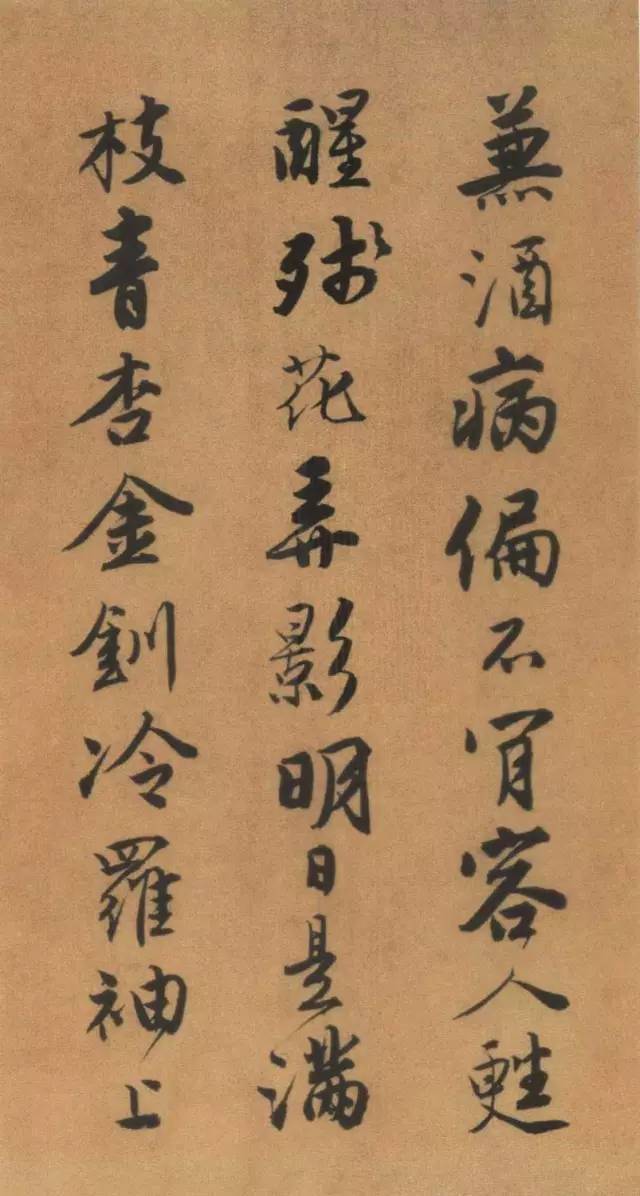 兼酒病偏不肎容人甦
醒殘花弄影明日是滿
枝青杏金釧冷羅袖上